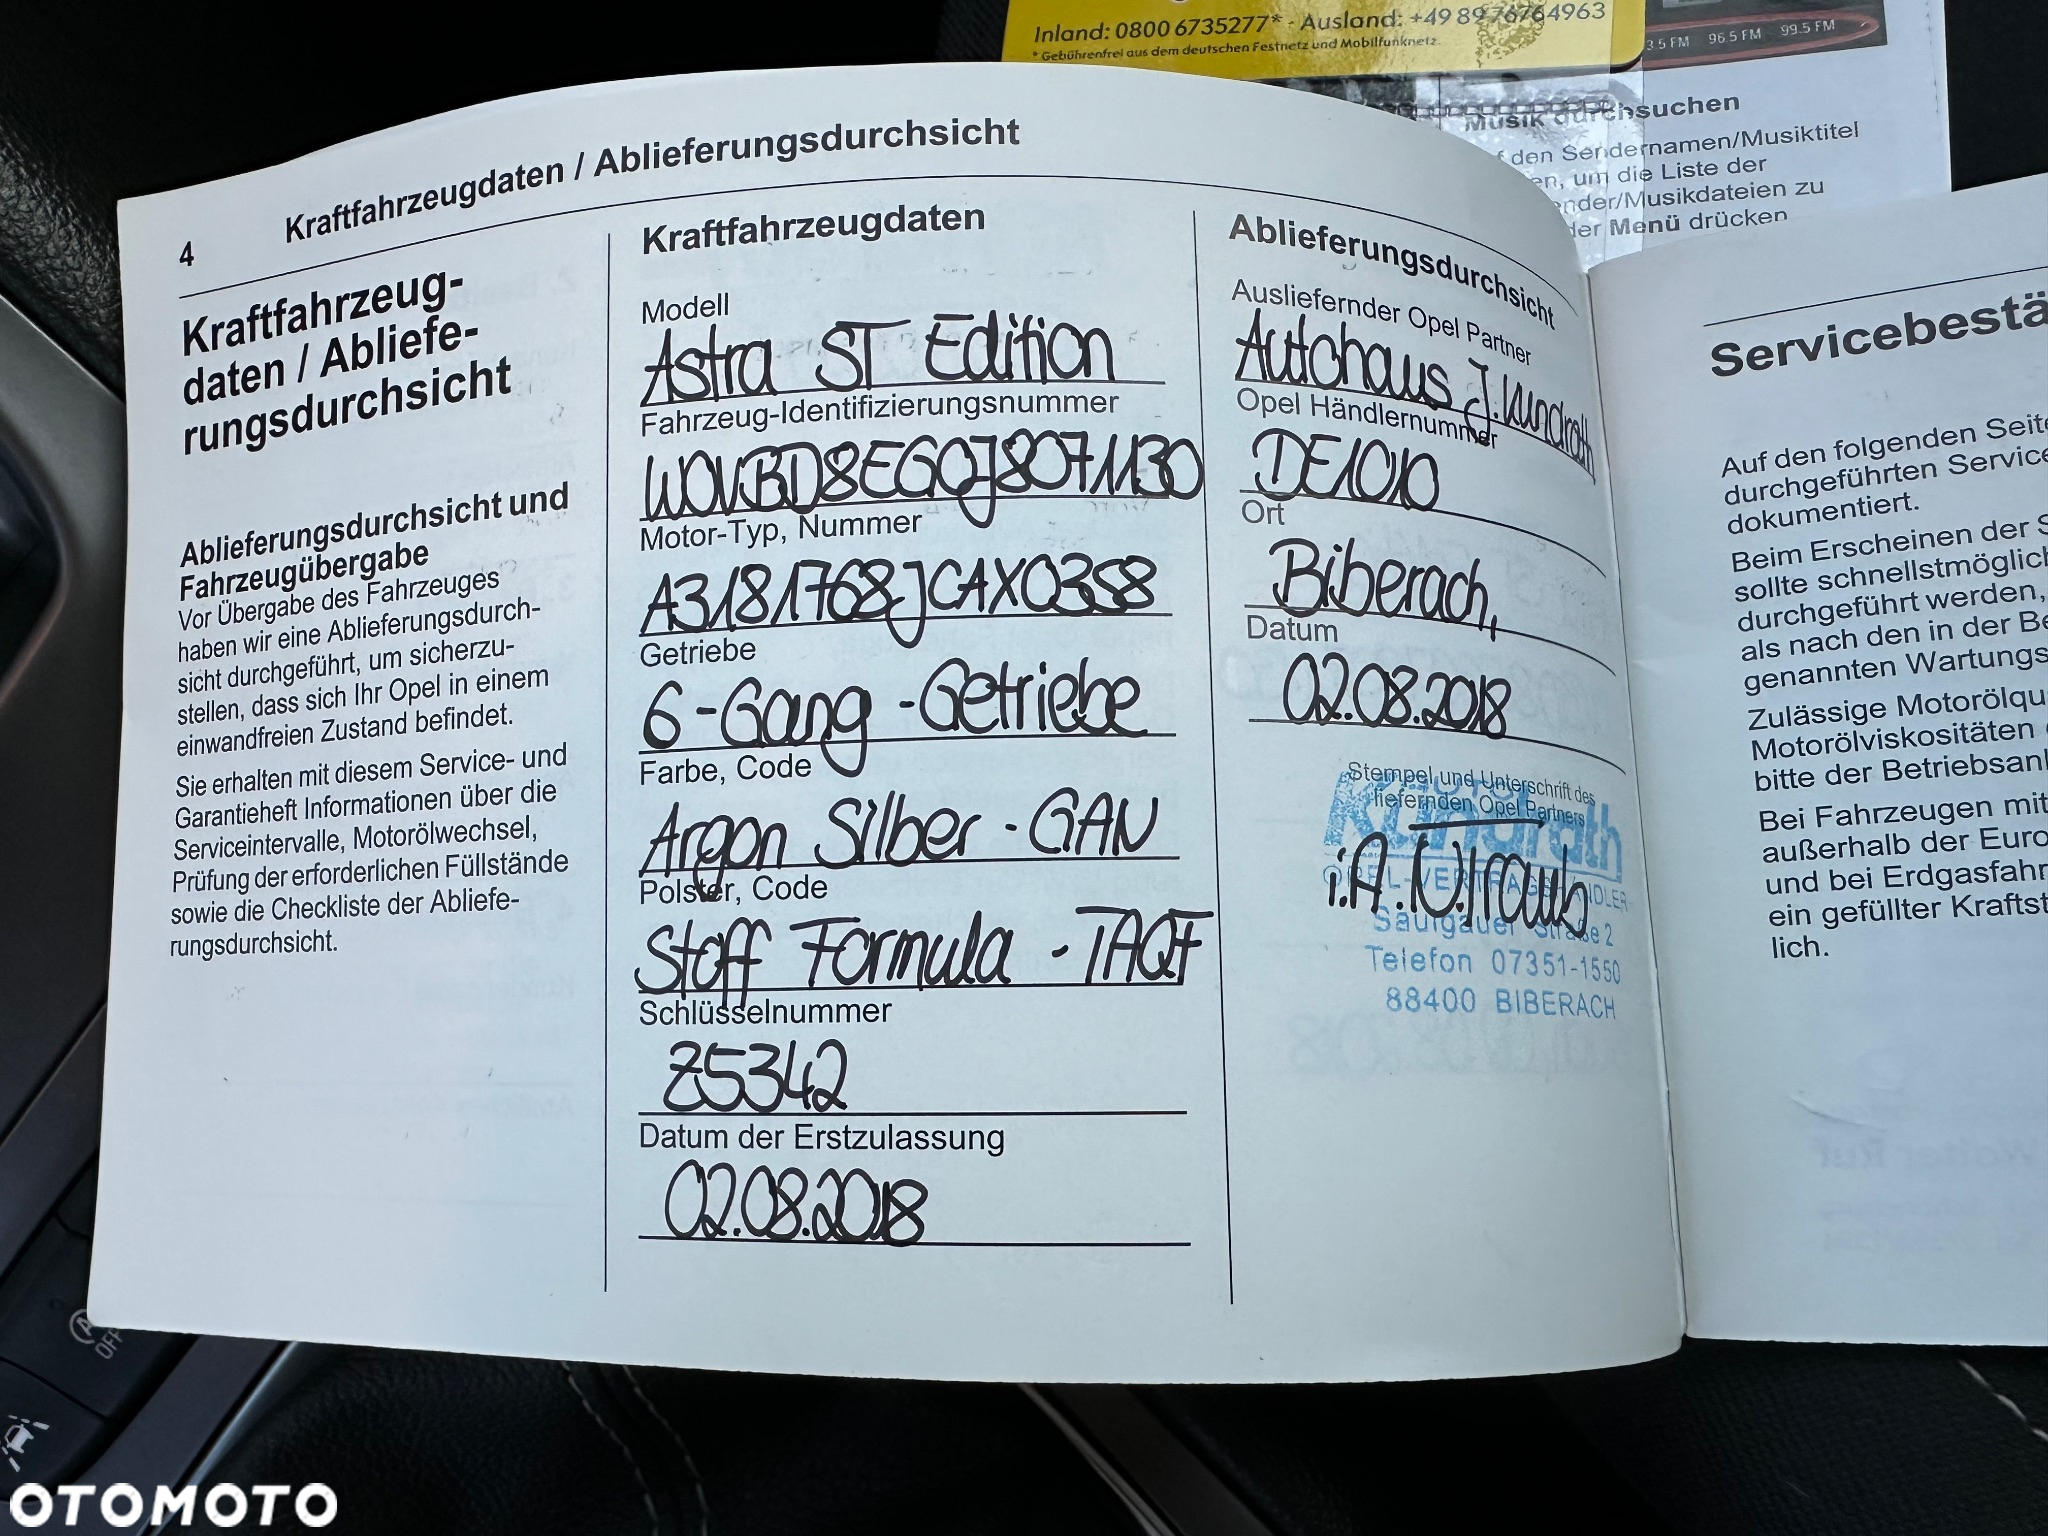 Inland: 0800 6735277* - Ausland: +49 89 76764963
* Gebührenfrei aus dem deutschen Festnetz und Mobilfunknetz.
3.5 FM 96.5 FM 99.5 FM
Musik durchsuchen
den Sendernamen/Musiktitel
en, um die Liste der
nder/Musikdateien zu
der Menü drücken
4 Kraftfahrzeugdaten / Ablieferungsdurchsicht
Kraftfahrzeug-
daten / Abliefe-
rungsdurchsicht
Ablieferungsdurchsicht und
Fahrzeugübergabe
Vor Übergabe des Fahrzeuges
haben wir eine Ablieferungsdurch-
sicht durchgeführt, um sicherzu-
stellen, dass sich Ihr Opel in einem
einwandfreien Zustand befindet.
Sie erhalten mit diesem Service- und
Garantieheft Informationen über die
Serviceintervalle, Motorölwechsel,
Prüfung der erforderlichen Füllstände
sowie die Checkliste der Abliefe-
rungsdurchsicht.
Kraftfahrzeugdaten
Modell
Astra ST Edition
Fahrzeug-Identifizierungsnummer
W0VBD8EG0J8071130
Motor-Typ, Nummer
A3181768JCAX0358
Getriebe
6-Gang-Getriebe
Farbe, Code
Argon Silber - GAN
Polster, Code
Stoff Formula - TAQF
Schlüsselnummer
Z5342
Datum der Erstzulassung
02.08.2018
Ablieferungsdurchsicht
Ausliefernder Opel Partner
Autohaus J. Kundrath
Opel Händlernummer
DE1010
Ort
Biberach,
Datum
02.08.2018
Stempel und Unterschrift des
liefernden Opel Partners
Kundrath
i.A.
OPEL-VERTRAGSHÄNDLER
Saulgauer Straße 2
Telefon 07351-1550
88400 BIBERACH
Servicebestä
Auf den folgenden Seite
durchgeführten Service
dokumentiert.
Beim Erscheinen der S
sollte schnellstmöglich
durchgeführt werden,
als nach den in der Be
genannten Wartungs
Zulässige Motorölqu
Motorölviskositäten
bitte der Betriebsanl
Bei Fahrzeugen mit
außerhalb der Euro
und bei Erdgasfahr
ein gefüllter Kraftst
lich.
OFF
OTOMOTO